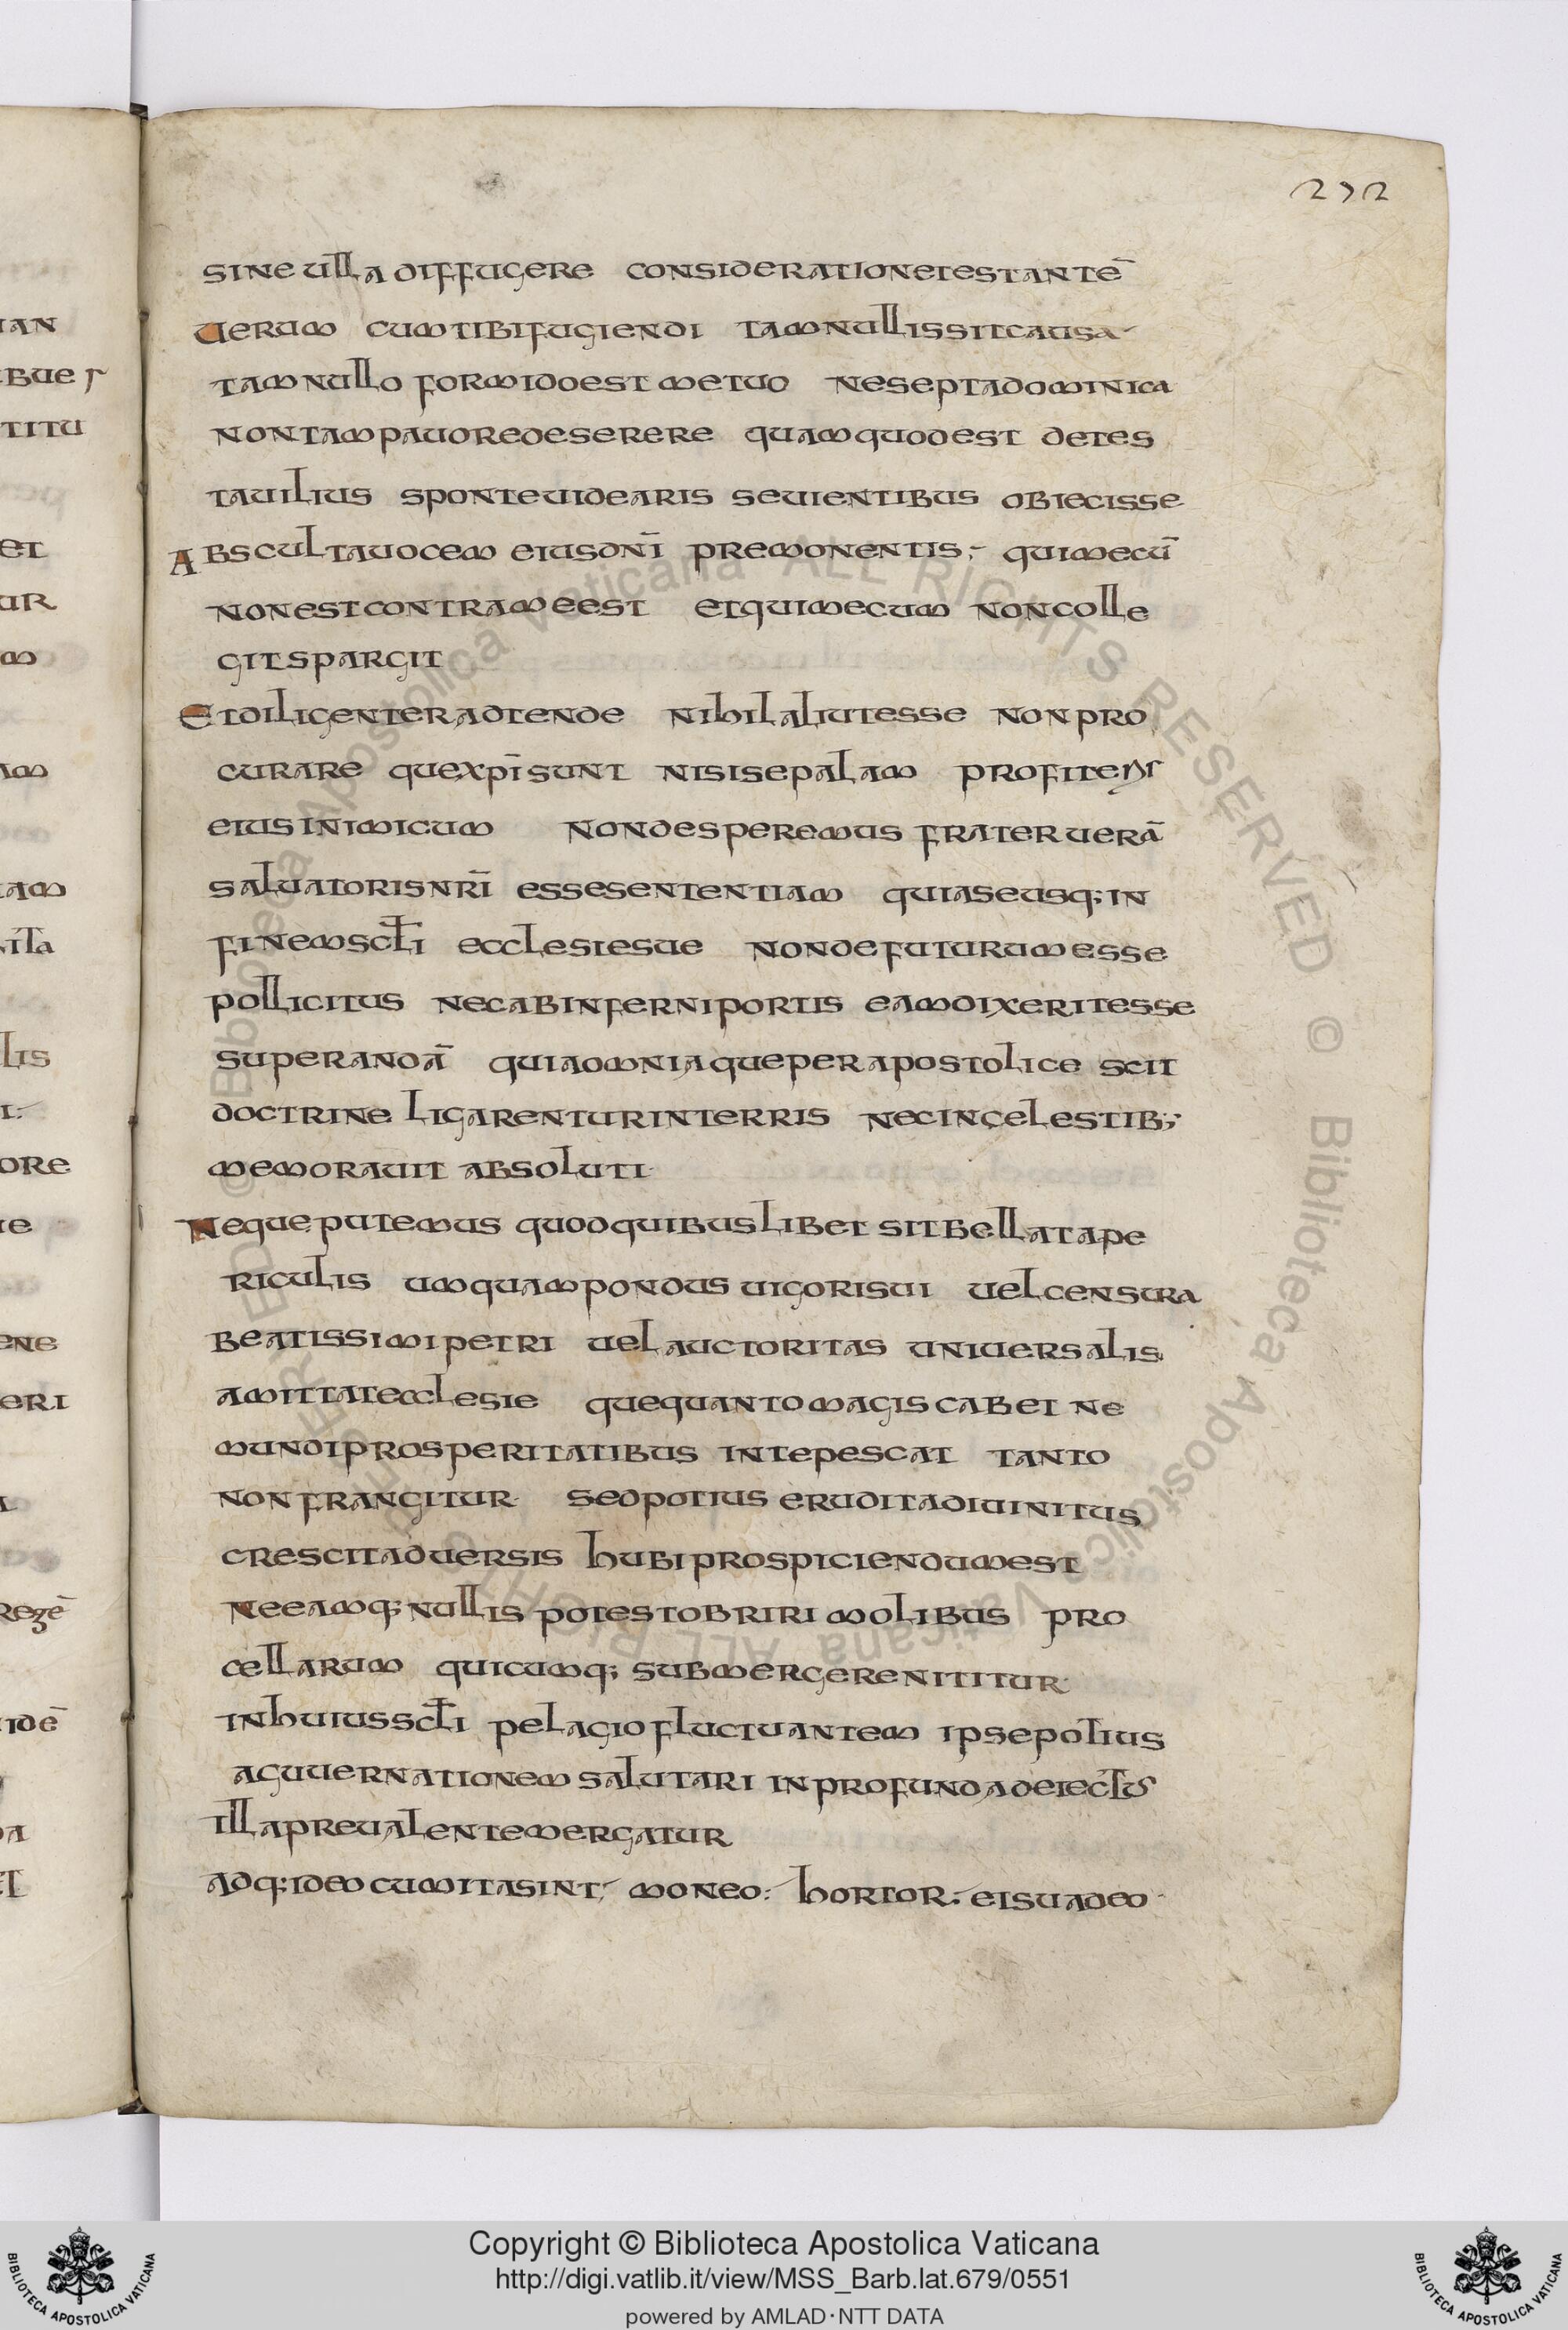 272
sine ulla diffugere consideratione testantē
uerum cum tibi fugiendi tam nullis sit causa
tam nullo formido est metuo ne septa dominica
non tam pauore deserere quam quod est detes
tauilius sponte uidearis seuientibus obiecisse
Absculta uocem eius dnī premonentis; qui mecū
non est contra me est et qui mecum non colle
git spargit
Et diligenter adtende nihil aliut esse non pro
curare que xpī sunt nisi se palam profiteri
eius inimicum non desperemus frater uerā
saluatoris nrī esse sententiam quia se usq; in
finem scli ecclesie sue non defuturum esse
pollicitus nec ab inferni portis eam dixerit esse
superandā quia omnia que per apostolice scit
doctrine ligarentur in terris nec in celestib;
memorauit absoluti
Neque putemus quod quibuslibet sit bellata pe
riculis umquam pondus uigoris ui uel censura
beatissimi petri uel auctoritas uniuersalis
amittat ecclesie que quanto magis cabet ne
mundi prosperitatibus intepescat tanto
non frangitur sed potius erudita diuinitus
crescit aduersis hubi prospiciendum est
ne eamq; nullis potest obriri molibus pro
cellarum quicumq; submergere nititur
in huius scli pelagio fluctuantem ipse potius
a guuernationem salutari in profunda deiectus
illa preualente mergatur
adq; ideo cum ita sint; moneo: hortor; et suadeo
ian
bues
titu
et
ur
m
am
tam
lis
ore
ie
ene
eri
idē
© Biblioteca Apostolica Vaticana ALL RIGHTS RESERVED © Biblioteca Apostolica Vaticana ALL RIGHTS RESERVED
Copyright © Biblioteca Apostolica Vaticana
http://digi.vatlib.it/view/MSS_Barb.lat.679/0551
powered by AMLAD·NTT DATA
BIBLIOTECA APOSTOLICA VATICANA
BIBLIOTECA APOSTOLICA VATICANA